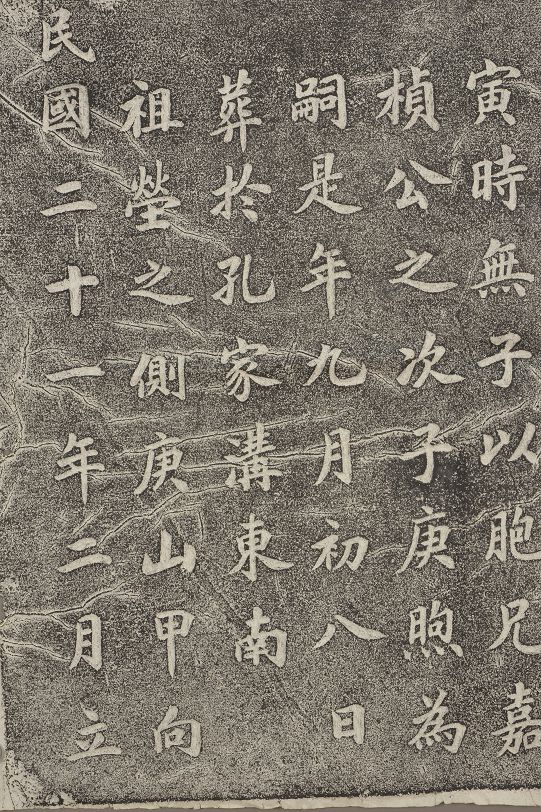 寅時無子以胞兄嘉
楨公之次子庚煦為
嗣是年九月初八日
葬於孔家溝東南
祖塋之側庚山甲向
民國二十一年二月立